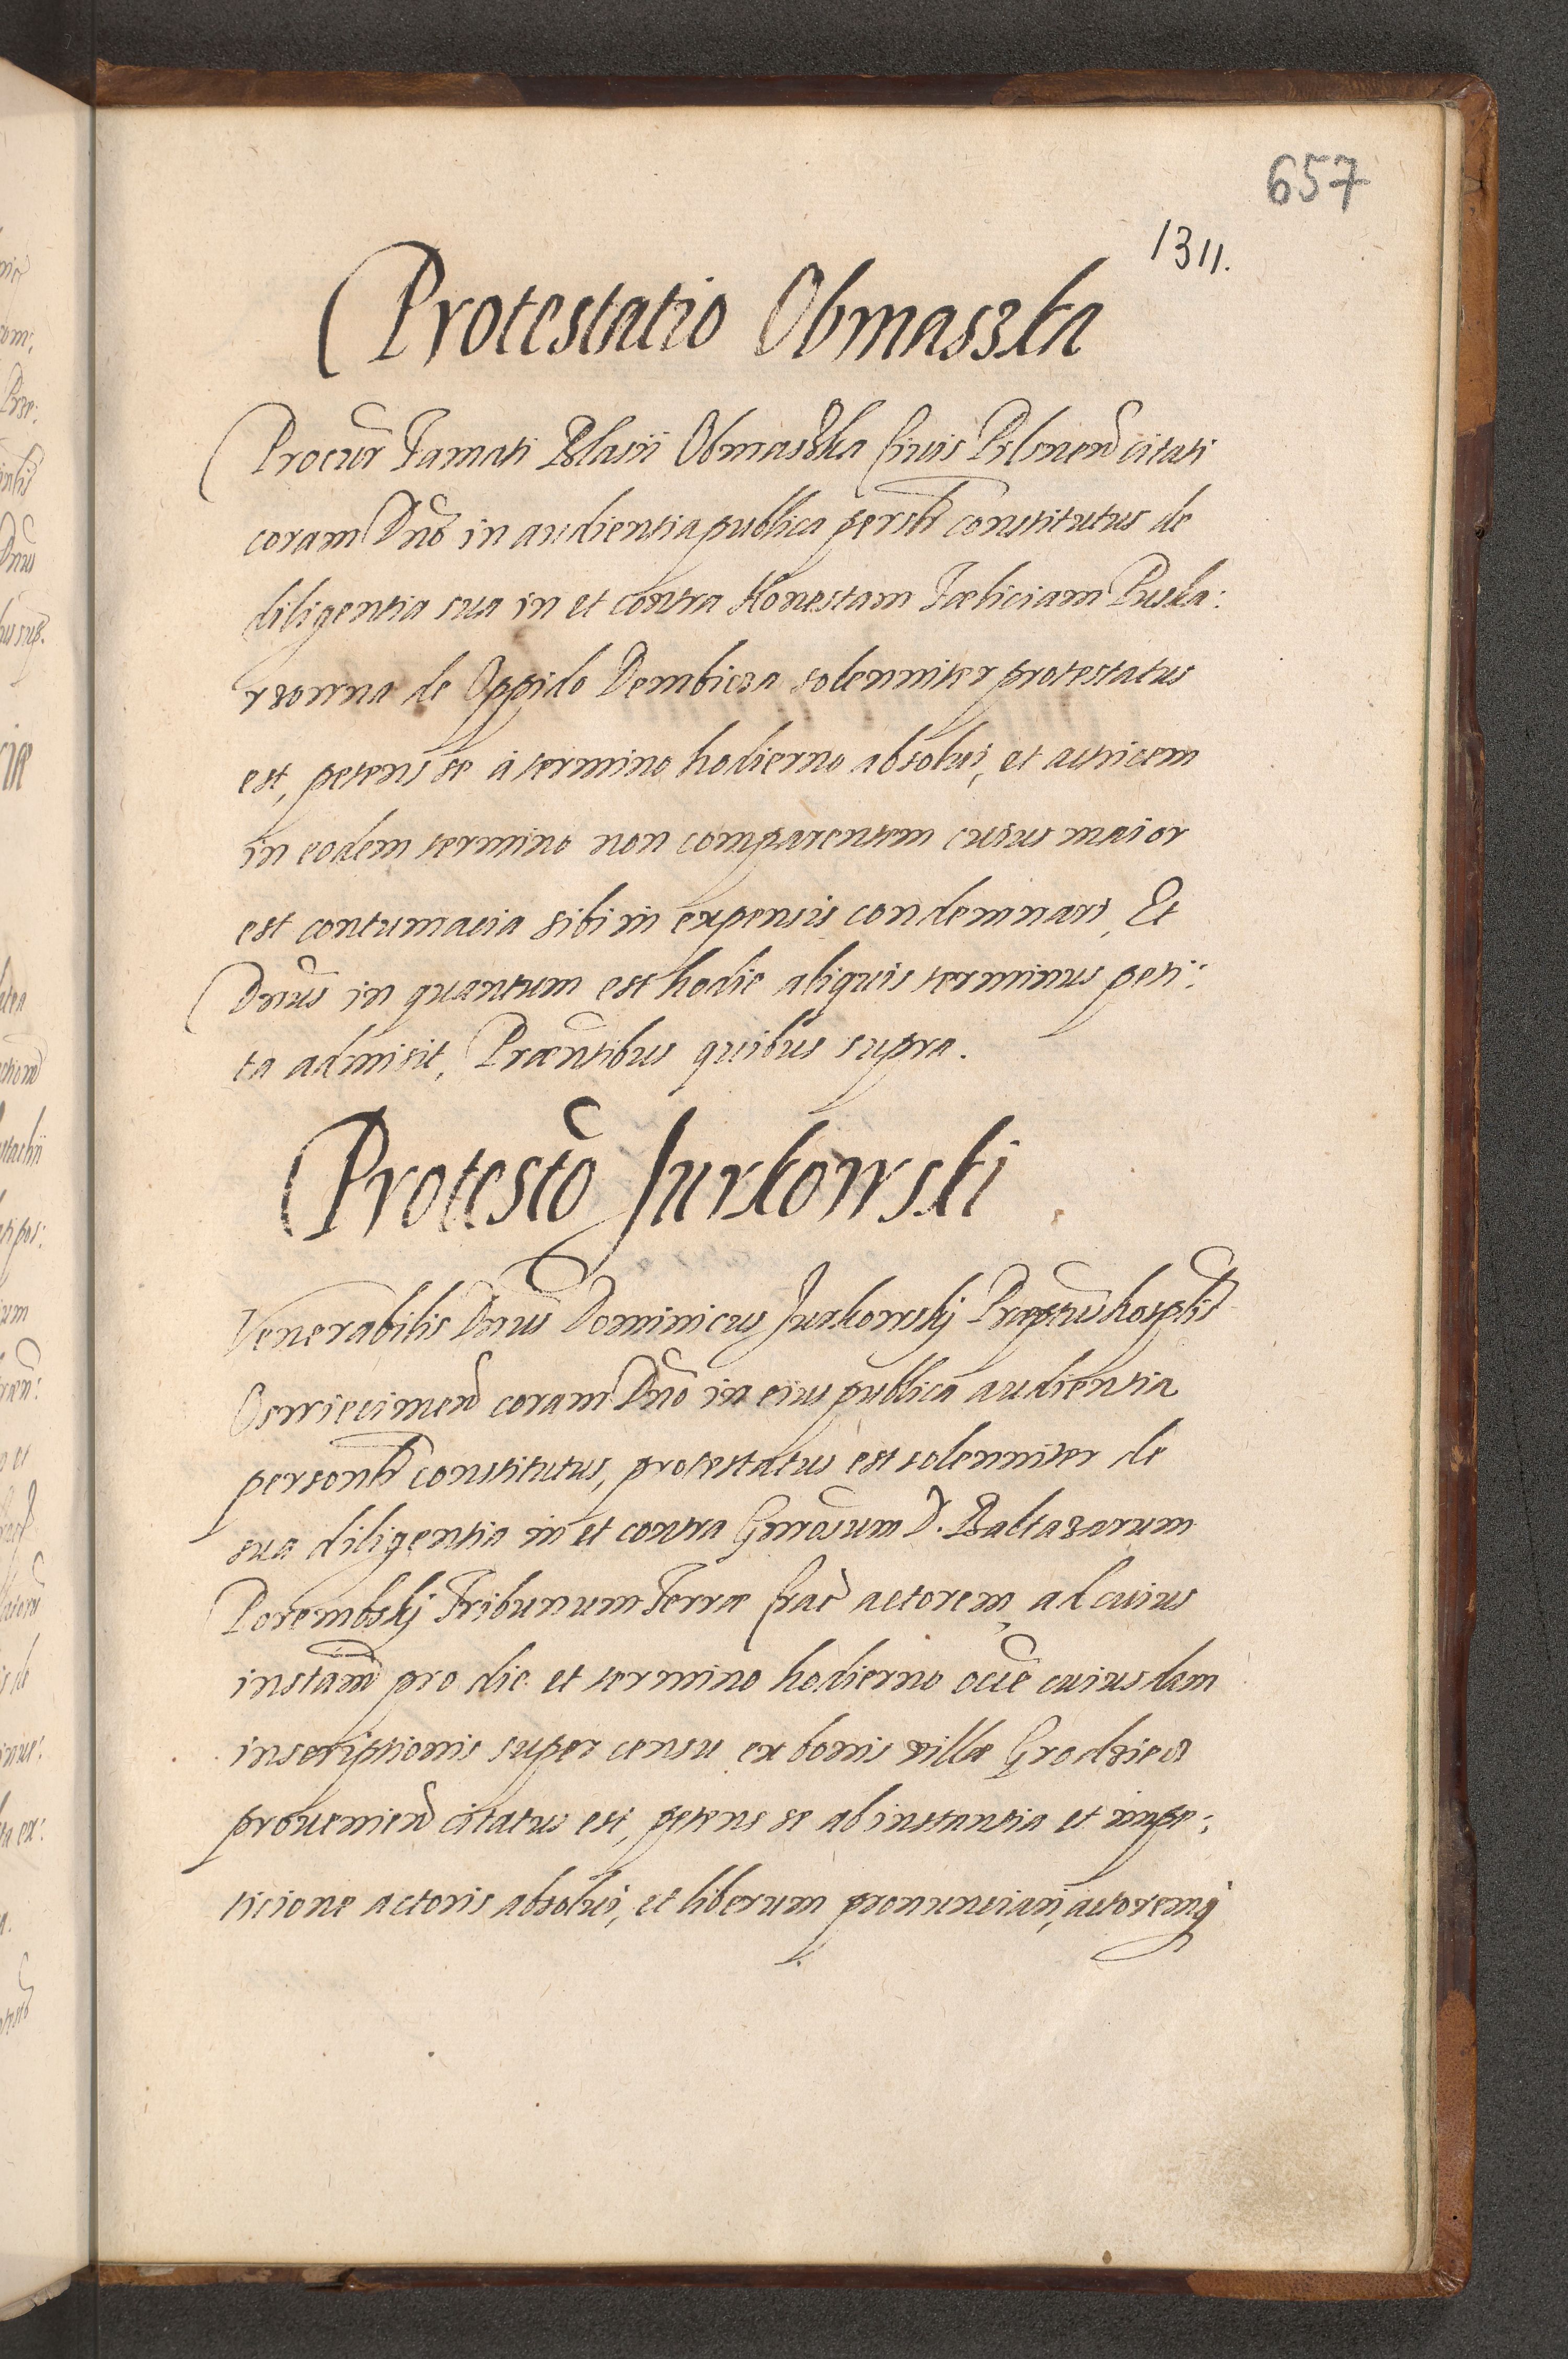 657
1311.
Protestatio Obmaszka
Procur̃ Famati Blasii Obmaszka Civis Pilsnen̄ citati
coram Dn̄o in audientia publica persl̄r constitutus de
diligentia sua in et contra Honestam Fæliciam
de Oppido Dembicza solenniter protestatus
est, petens se a termino hodierno absolui, et actricem
in eodem termino non comparentem cuius maior
est contumacia sibi in expensis condemnari, Et
Dn̄us in quantum est hodie aliquis terminus peti:
ta admisit, Præn̄tibus quibus supra.
Protesto͂ Jurkowski
Venerabilis Dn̄us Dominicus Jurkowskj Præpt̄us hosplis̄
Oswiecimen̄ coram Dn̄o in eius publica audientia
personlr̄ constitutus, protestatus est solenniter de
sua diligentia in et contra Gn̄rosum D. Baltazarum
Porembskj Tribunum Terræ Crac̄ actorem, ad cuius
instam̄ pro die et termino hodierno occ̄e cuiusdam
inscriptionis super censu ex bonis villæ Grodziecz
provenien̄ citatus est, petens se ab instantia et impe:
ticione actoris absolui, et liberum pronunciari, actoremq́